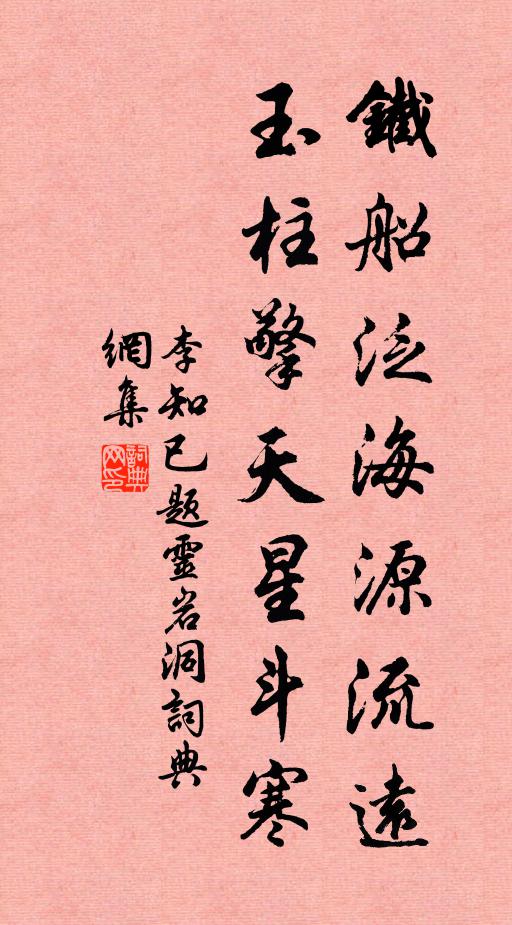 鐵船泛海源流遠
玉柱擎天星斗寒
李知已題靈岩洞詞典
網集
詞典
网印